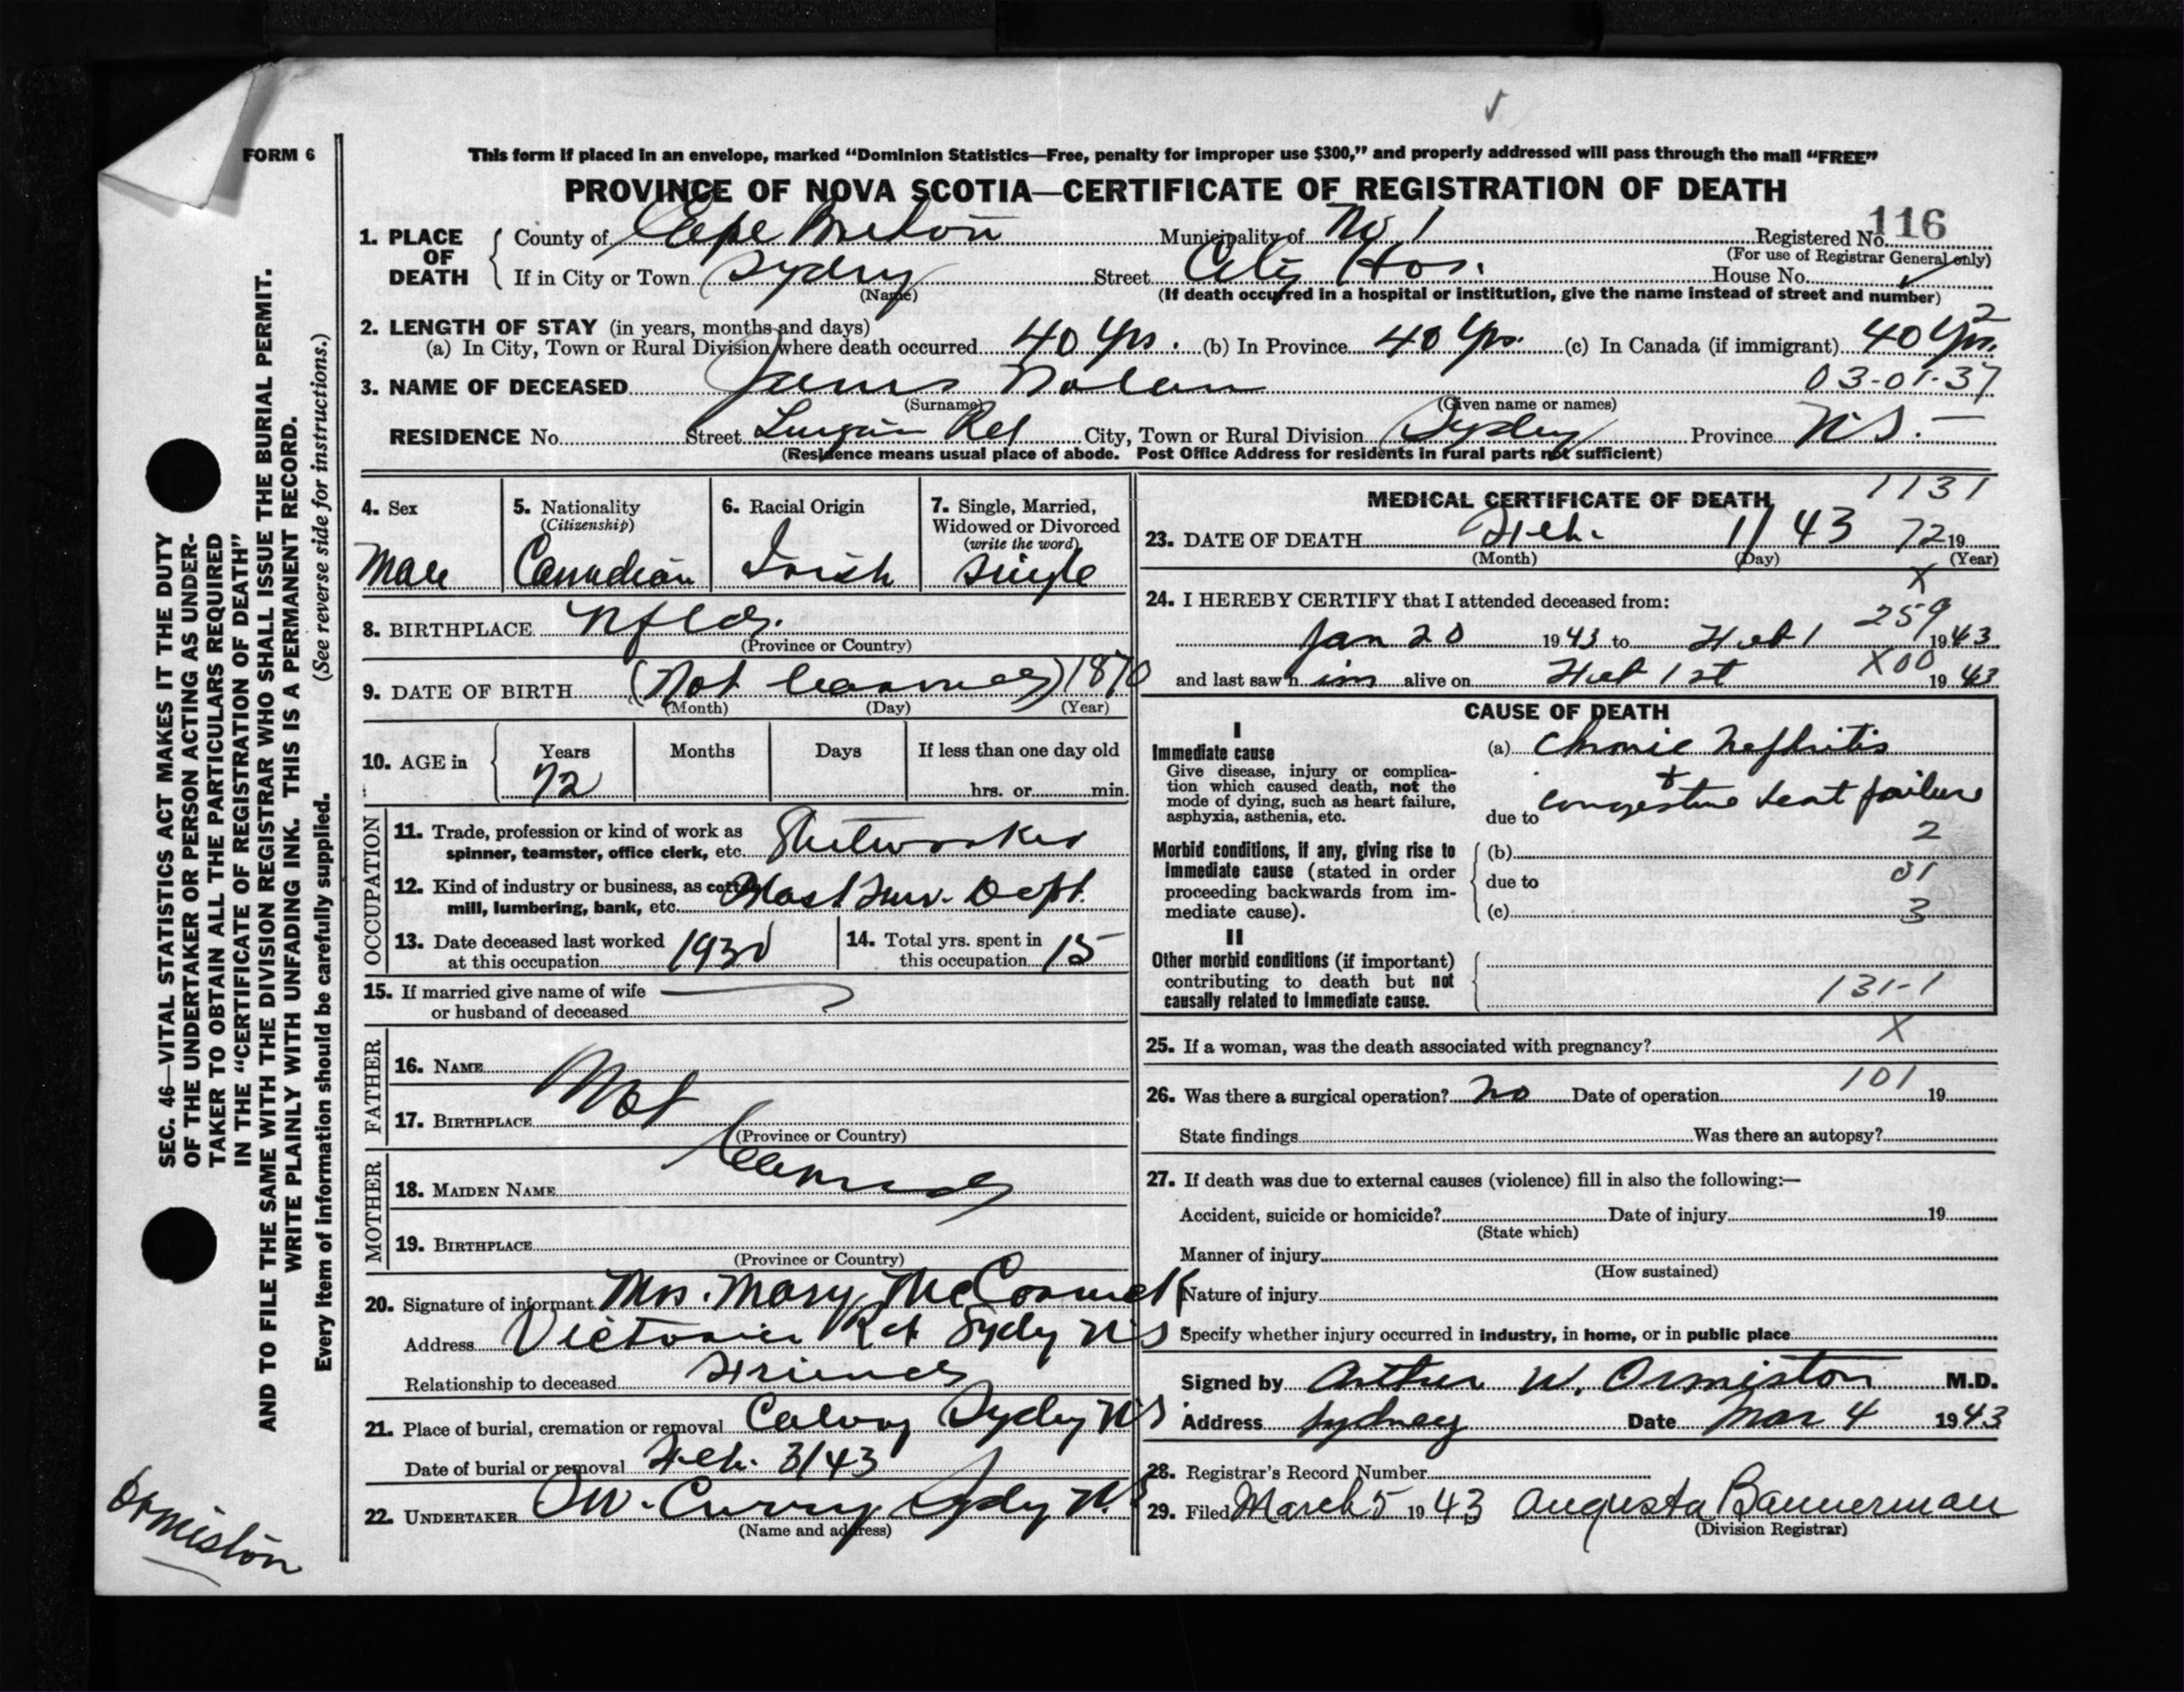 FORM 6
This form if placed in an envelope, marked “Dominion Statistics—Free, penalty for improper use $300,” and properly addressed will pass through the mail “FREE”
PROVINCE OF NOVA SCOTIA—CERTIFICATE OF REGISTRATION OF DEATH
116
1. PLACE OF DEATH County of Cape Breton Municipality of No 1 Registered No.
(For use of Registrar General only)
If in City or Town Sydney Street City Hos. House No.
(Name) (If death occurred in a hospital or institution, give the name instead of street and number)
2. LENGTH OF STAY (in years, months and days) 2
(a) In City, Town or Rural Division where death occurred 40 Yrs. (b) In Province 40 Yrs. (c) In Canada (if immigrant) 40 Yrs.
3. NAME OF DECEASED James Nolan 03-01-37
(Surname) (Given name or names)
RESIDENCE No. Street Rd City, Town or Rural Division Sydney Province N.S.-
(Residence means usual place of abode. Post Office Address for residents in rural parts not sufficient)
4. Sex
Male
5. Nationality
(Citizenship)
Canadian
6. Racial Origin
Irish
7. Single, Married,
Widowed or Divorced
(write the word)
Single
8. BIRTHPLACE Nfld.
(Province or Country)
9. DATE OF BIRTH (Not learned) 1870
(Month) (Day) (Year)
10. AGE in Years Months Days If less than one day old
72 hrs. or min.
OCCUPATION
11. Trade, profession or kind of work as
spinner, teamster, office clerk, etc. Steelworker
12. Kind of industry or business, as cotton
mill, lumbering, bank, etc. Blast Fur. Dept.
13. Date deceased last worked
at this occupation 1930
14. Total yrs. spent in
this occupation 15
15. If married give name of wife
or husband of deceased
FATHER
16. NAME Not
17. BIRTHPLACE
(Province or Country)
learned
MOTHER
18. MAIDEN NAME
19. BIRTHPLACE
(Province or Country)
20. Signature of informant Mrs. Mary McCormick
Address Victoria Rd Sydney N.S
Relationship to deceased Friend
21. Place of burial, cremation or removal Calvary Sydney N.S
Date of burial or removal Feb. 3/43
22. UNDERTAKER W. Curry Sydney N.S
(Name and address)
MEDICAL CERTIFICATE OF DEATH 1131
23. DATE OF DEATH Feb. 1/43 72 19
(Month) (Day) (Year)
X
24. I HEREBY CERTIFY that I attended deceased from:
259
Jan 20 1943 to Feb 1 1943
and last saw h im alive on Feb 1st X00 1943
CAUSE OF DEATH
I
Immediate cause
Give disease, injury or complica-
tion which caused death, not the
mode of dying, such as heart failure,
asphyxia, asthenia, etc.
(a) Chronic Nephritis
+
due to congestive heart failure
2
Morbid conditions, if any, giving rise to
immediate cause (stated in order
proceeding backwards from im-
mediate cause).
(b)
due to 01
(c) 3
II
Other morbid conditions (if important)
contributing to death but not
causally related to immediate cause.
131-1
X
25. If a woman, was the death associated with pregnancy?
101
26. Was there a surgical operation? no Date of operation 19
State findings Was there an autopsy?
27. If death was due to external causes (violence) fill in also the following:—
Accident, suicide or homicide? Date of injury 19
(State which)
Manner of injury
(How sustained)
Nature of injury
Specify whether injury occurred in industry, in home, or in public place
Signed by Arthur W. Ormiston M.D.
Address Sydney Date Mar 4 1943
28. Registrar's Record Number
29. Filed March 5 1943 Augusta Bannerman
(Division Registrar)
SEC. 46—VITAL STATISTICS ACT MAKES IT THE DUTY
OF THE UNDERTAKER OR PERSON ACTING AS UNDER-
TAKER TO OBTAIN ALL THE PARTICULARS REQUIRED
IN THE “CERTIFICATE OF REGISTRATION OF DEATH”
AND TO FILE THE SAME WITH THE DIVISION REGISTRAR WHO SHALL ISSUE THE BURIAL PERMIT.
WRITE PLAINLY WITH UNFADING INK. THIS IS A PERMANENT RECORD.
Every item of information should be carefully supplied. (See reverse side for instructions.)
Ormiston